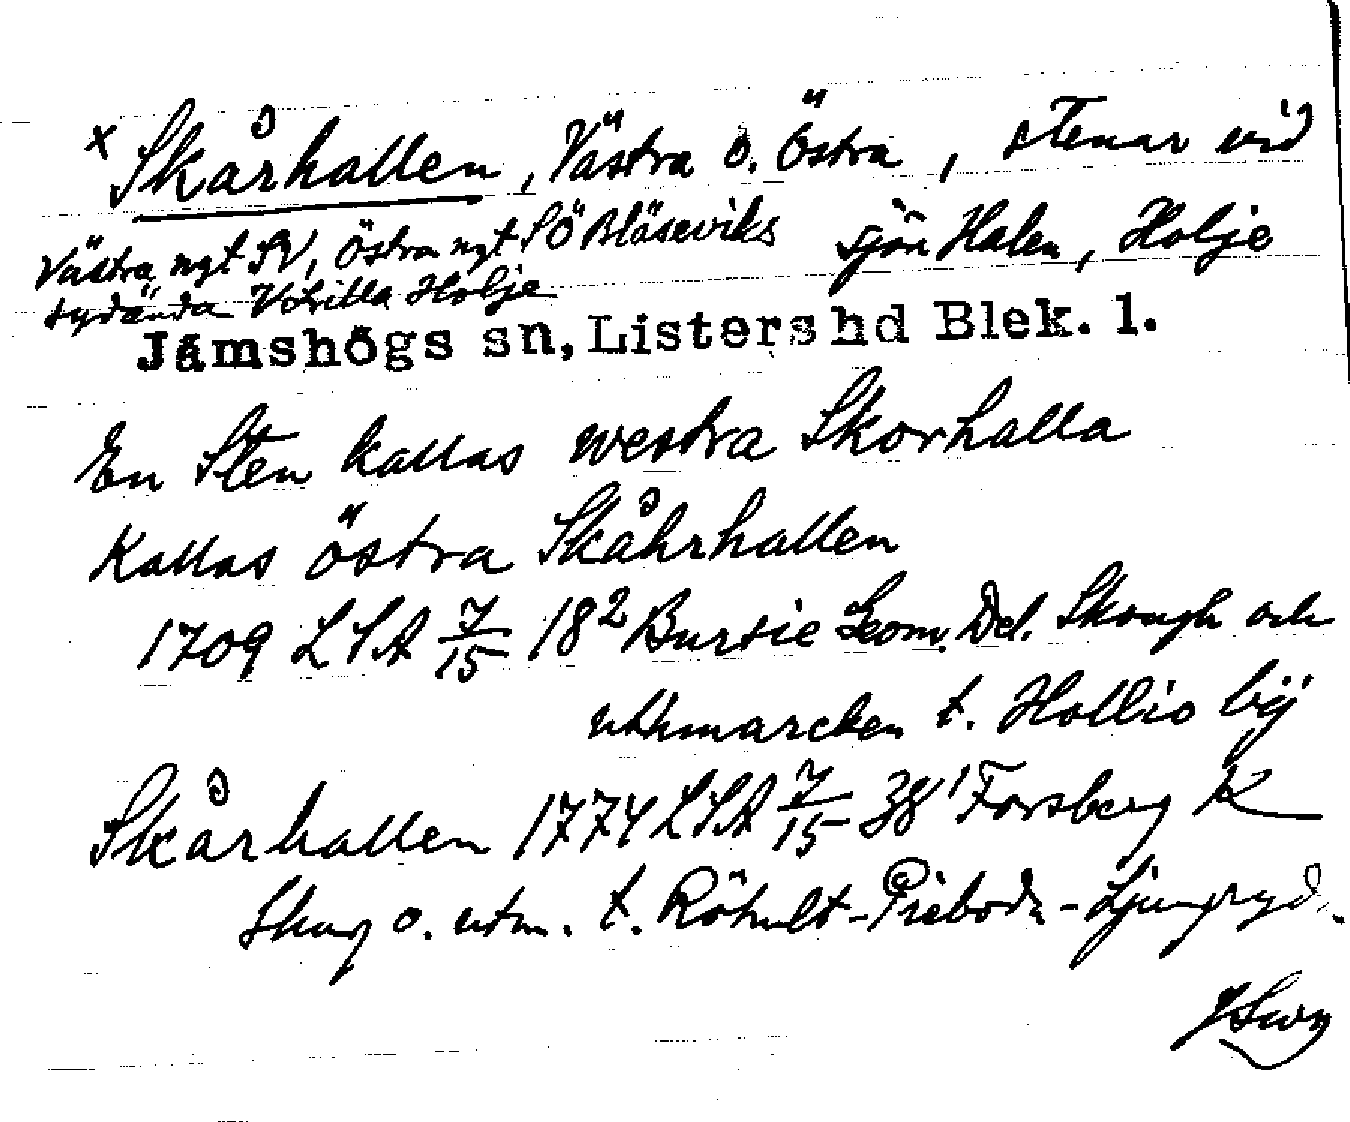 x Skårhallen, Västra o. Östra, stenar vid
sjön Halen, Holje
Västra, ngt SV, Östra ngt SÖ Blåseviks
sydända V Lilla Holje
Jämshögs sn, Listers hd Blek. l.
En Sten kallas westra Skorhalla
Kallas östra Skåhrhallen
1709 LSA 7/15 18² Bursie Geom. Del. Skough och
uthmarcken t. Hollio bÿ
Skårhallen 1774 LSA 7/15 38¹ Forsberg K
Skog o. utm. t. Röhult-Pieboda-Ljungryd.